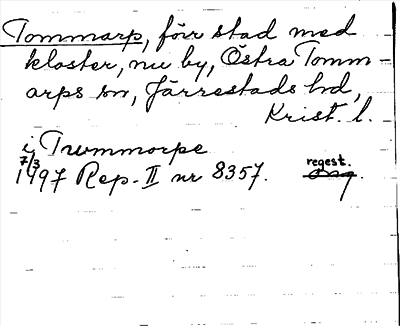 Tommarp, förr stad med
kloster, nu by, Östra Tomm-
arps sn, Järrestads hd,
Krist. l.
i Trummorpe
7/3
1497 Rep. II nr 8357. regest.
Orig.